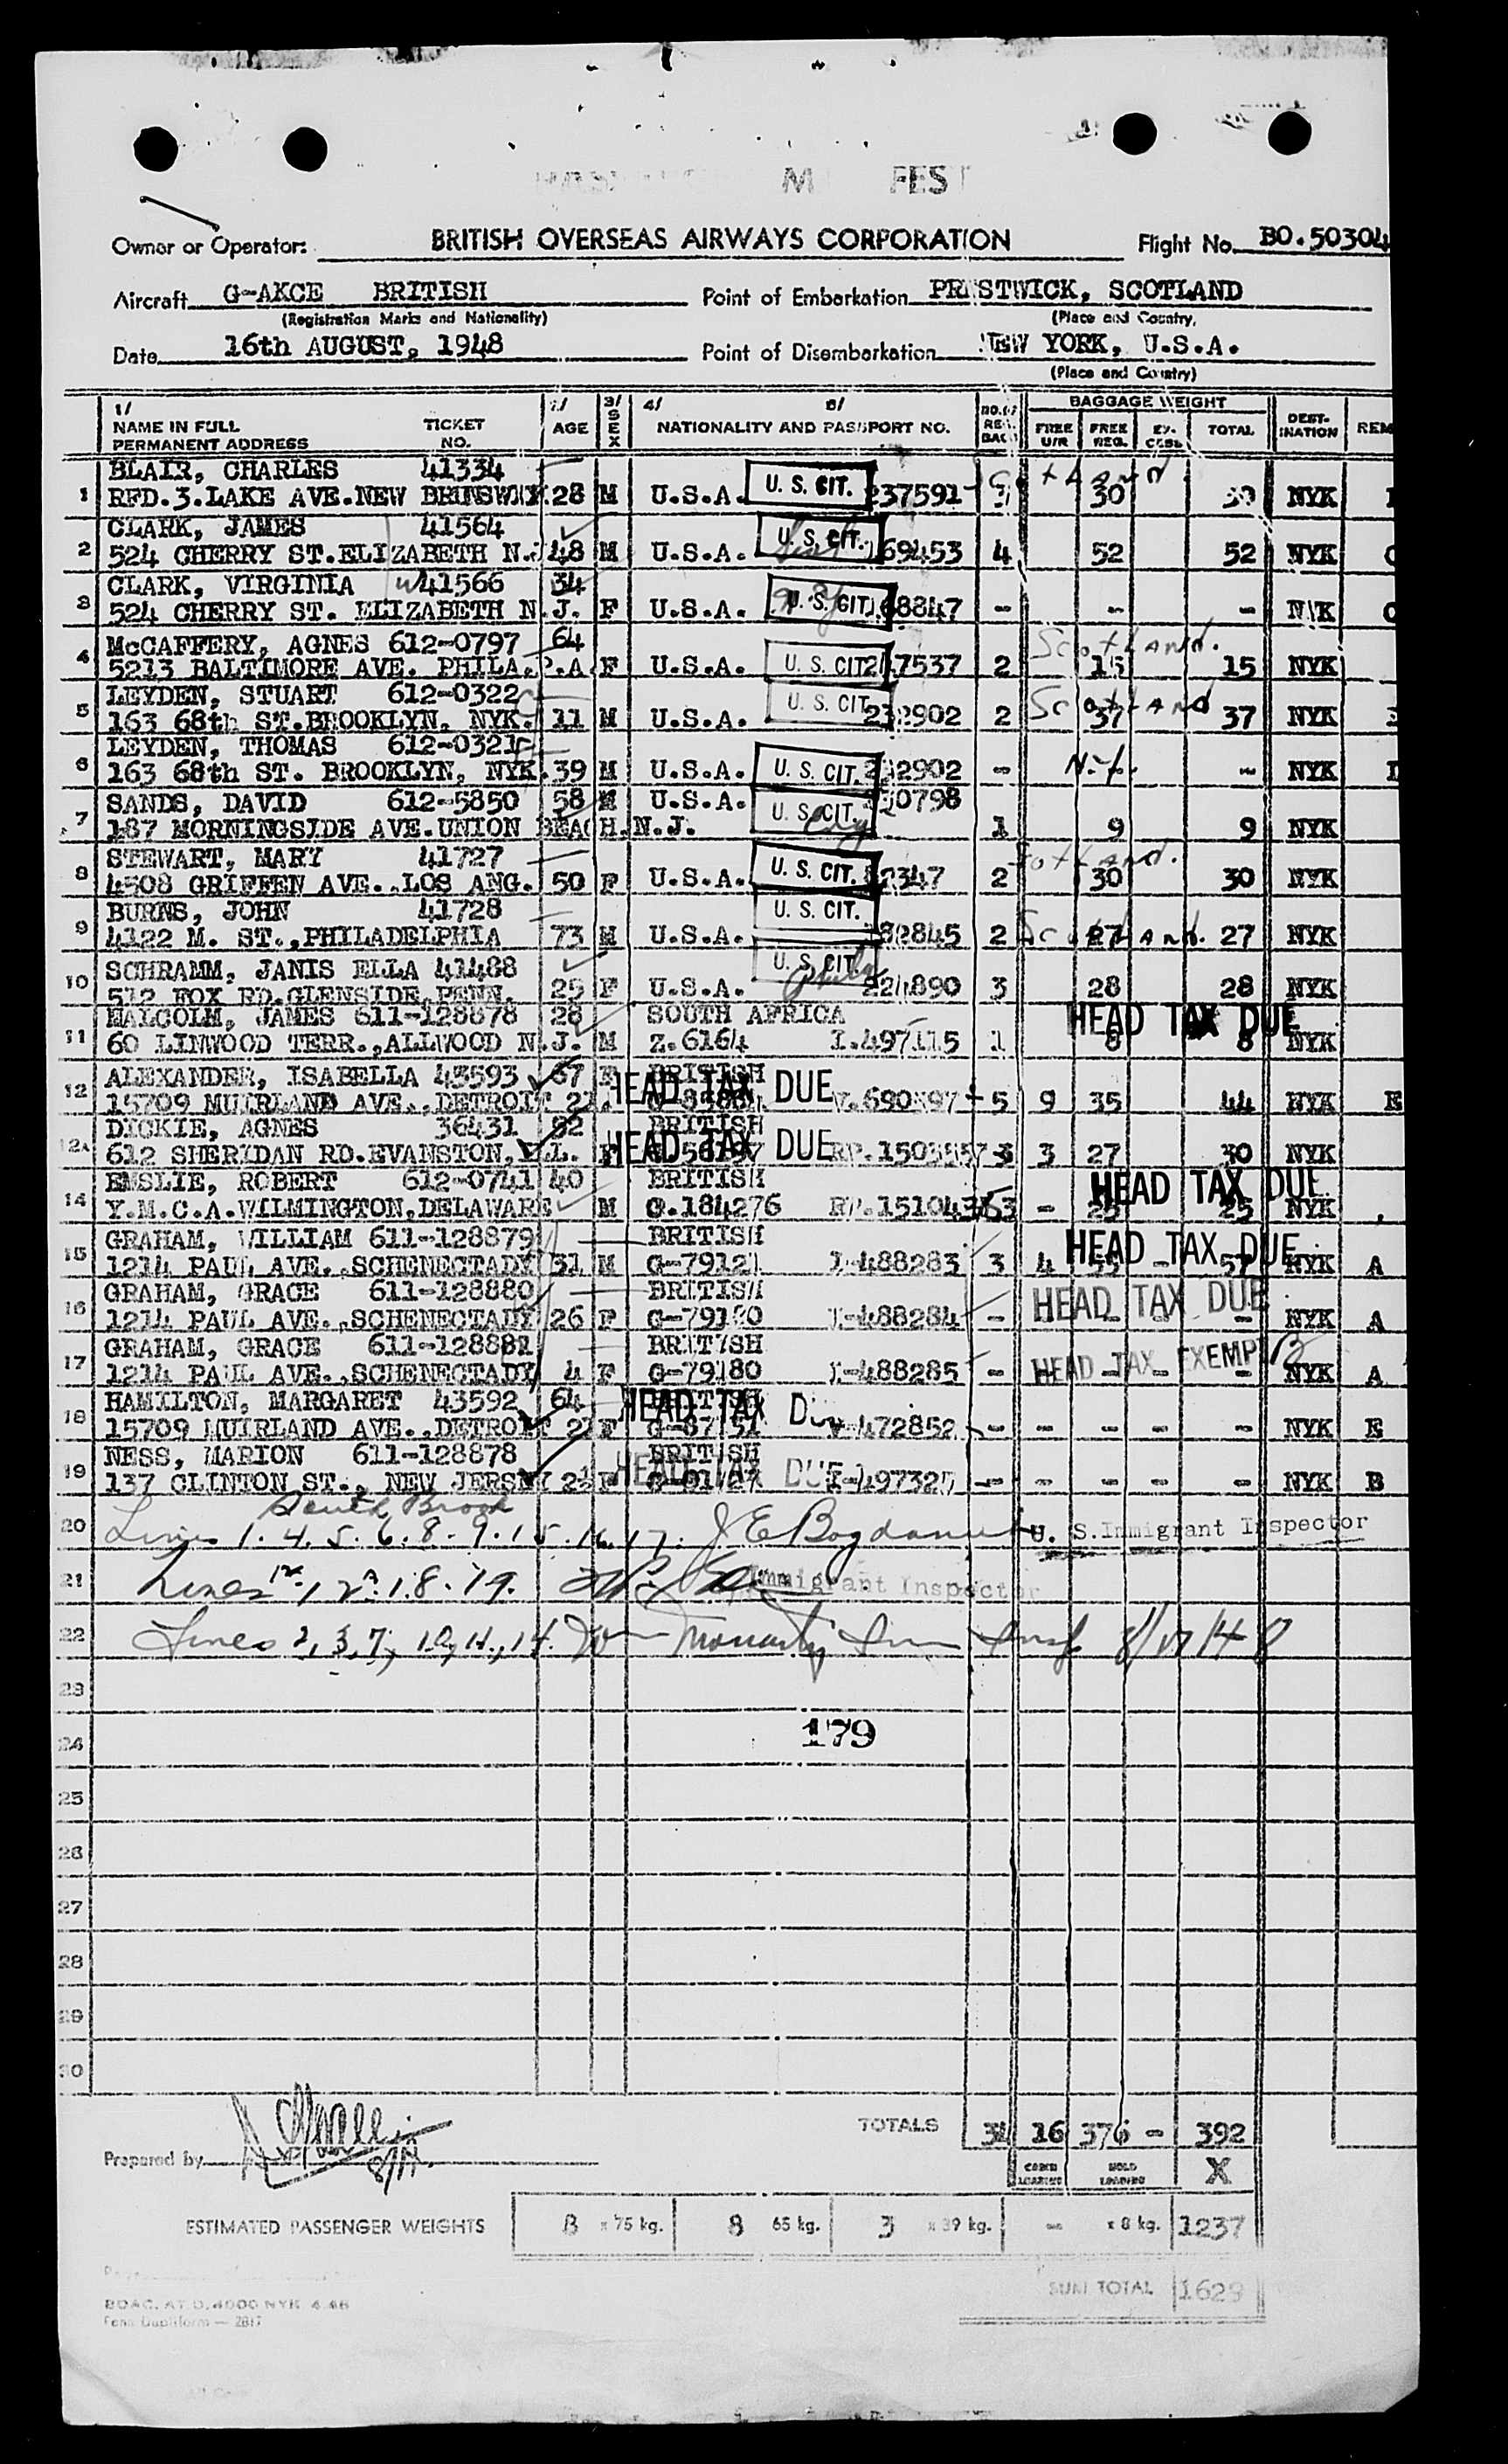 M FEST
Owner or Operator: BRITISH OVERSEAS AIRWAYS CORPORATION Flight No. BO.50304
Aircraft G-AKCE BRITISH Point of Embarkation PRESTWICK, SCOTLAND
(Registration Marks and Nationality) (Place and Country,
Date 16th AUGUST, 1948 Point of Disembarkation NEW YORK, U.S.A.
(Place and Country)
1/ NAME IN FULL PERMANENT ADDRESS TICKET NO. 2/ AGE 3/ SEX 4/ 5/ NATIONALITY AND PASSPORT NO. BAGGAGE WEIGHT FREE U/R FREE REG. EX-CESS TOTAL DEST-INATION REM
BLAIR, CHARLES 41334
1 RFD.3.LAKE AVE.NEW BRUNSWICK 28 M U.S.A. U. S. CIT. 237591 30 NYK
CLARK, JAMES 41564
2 524 CHERRY ST.ELIZABETH N.J 48 M U.S.A. U. S. CIT. 69453 4 52 52 NYK
CLARK, VIRGINIA 41566 34
3 524 CHERRY ST. ELIZABETH N.J. F U.S.A. U. S. CIT. 68847 - - - NYK
McCAFFERY, AGNES 612-0797 64 Scotland.
4 5213 BALTIMORE AVE. PHILA. P.A. F U.S.A. U. S. CIT 7537 2 15 15 NYK
LEYDEN, STUART 612-0322
5 163 68th ST.BROOKLYN, NYK. 11 M U.S.A. U. S. CIT. 232902 2 Scotland 37 37 NYK
LEYDEN, THOMAS 612-0321
6 163 68th ST. BROOKLYN, NYK. 39 M U.S.A. U. S. CIT. 232902 - N.Y. - NYK
SANDS, DAVID 612-5850 58 M U.S.A. U. S. CIT. 0798
7 187 MORNINGSIDE AVE.UNION BEACH.N.J. 1 9 9 NYK
STEWART, MARY 41727
8 4508 GRIFFEN AVE.,LOS ANG. 50 F U.S.A. U. S. CIT. 2347 2 30 30 NYK
BURNS, JOHN 41728 U. S. CIT.
9 4122 M. ST.,PHILADELPHIA 73 M U.S.A. 82845 2 Scotland. 27 27 NYK
SCHRAMM, JANIS ELLA 41488 U. S. CIT.
10 512 FOX RD.GLENSIDE,PENN. 25 F U.S.A. 224890 3 28 28 NYK
MALCOLM, JAMES 611-128878 28 SOUTH AFRICA HEAD TAX DUE
11 60 LINWOOD TERR.,ALLWOOD N.J. M Z.6164 I.497115 1 8 8 NYK
ALEXANDER, ISABELLA 43593 67 F BRITISH HEAD TAX DUE
12 15709 MUIRLAND AVE.,DETROIT 21. V.690397 5 9 35 44 NYK E
DICKIE, AGNES 36431 52 BRITISH HEAD TAX DUE
12A 612 SHERIDAN RD.EVANSTON, ILL. F 3 3 27 30 NYK
EMSLIE, ROBERT 612-0741 40 BRITISH HEAD TAX DUE
14 Y.M.C.A.WILMINGTON,DELAWARE M G.184276 3 - 25 25 NYK
GRAHAM, WILLIAM 611-128879 BRITISH HEAD TAX DUE
15 1214 PAUL AVE.,SCHENECTADY 31 M G-79121 I-488283 3 4 - NYK A
GRAHAM, GRACE 611-128880 BRITISH HEAD TAX DUE
16 1214 PAUL AVE.,SCHENECTADY 26 F I-488284 - - - - NYK A
GRAHAM, GRACE 611-128881 BRITISH HEAD TAX EXEMPT
17 1214 PAUL AVE.,SCHENECTADY 4 F G-79180 I-488285 - - - - NYK A
HAMILTON, MARGARET 43592 64 BRITISH HEAD TAX DUE
18 15709 MUIRLAND AVE.,DETROIT 21 F V-472852 - - - - - NYK E
NESS, MARION 611-128878 BRITISH HEAD TAX DUE
19 137 CLINTON ST., NEW JERSEY F - - - - - NYK B
20 Lines 1.4.5.6.8.9.15.16.17. U. S.Immigrant Inspector
21 Lines Immigrant Inspector
22 Lines 2, 3, 7, 10, 11, 14. 8/17/48
23
179
24
25
26
27
28
29
30
TOTALS 31 16 376 - 392
Prepared by CABIN LOADING HOLD LOADING X
ESTIMATED PASSENGER WEIGHTS 8 x 75 kg. 8 65 kg. 3 x 39 kg. - x 8 kg. 1237
SUM TOTAL 1629
BOAC. AT D.4000 NYK 4.48